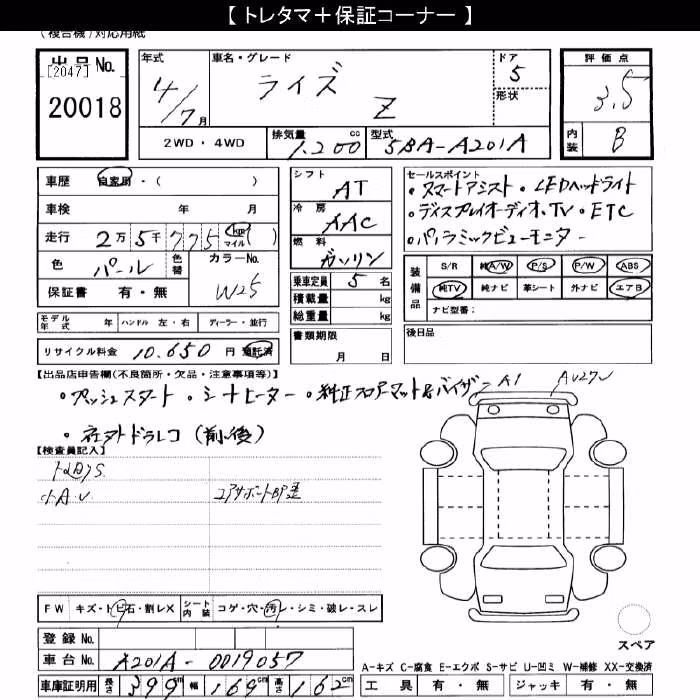 【 トレタマ＋保証コーナー 】
(複合機)対応用紙
出品No.
[2047]
20018
年式 4/7月
車名・グレード ライズ Z
ドア 5
形状
評価点 3.5
内装 B
2WD・4WD
排気量 1.200 cc
型式 5BA-A201A
車歴 自家用・( )
車検 年 月
走行 2万5千775 km マイル ( )
色 パール
色替
カラーNo. W25
保証書 有・無
モデル年式 年 ハンドル 左・右 ディーラー・並行
リサイクル料金 10.650 円 預託済
シフト AT
冷房 AAC
燃料 ガソリン
乗車定員 5 名
積載量 kg
総重量 kg
書類期限
月 日
セールスポイント
・スマートアシスト・LEDヘッドライト
・ディスプレイオーディオ、TV・ETC
・パノラミックビューモニター
装備品
S/R 純A/W P/S P/W ABS
純TV 純ナビ 革シート 外ナビ エアB
ナビ型番:
後日品
【出品店申告欄(不良箇所・欠品・注意事項等)】
・プッシュスタート・シートヒーター・純正フロアマット&バイザー
・社外ドラレコ(前後)
A1
【検査員記入】
小A.U
コアサポートBP歪
FW キズ・トビ石・割レX
シート内装 コゲ・穴・汚レ・シミ・破レ・スレ
登録No.
車台No. A201A-0019057
車庫証明用 長さ 399cm 幅 169cm 高さ 162cm
スペア
A-キズ C-腐食 E-エクボ S-サビ U-凹ミ W-補修 XX-交換済
工具 有・無 ジャッキ 有・無